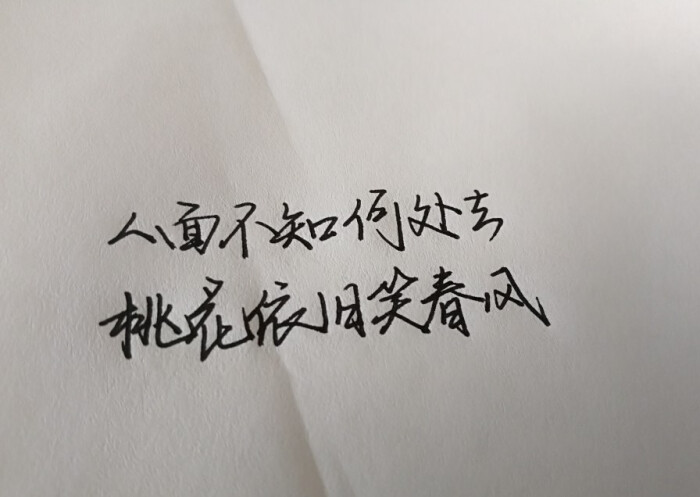 人面不知何处去
桃花依旧笑春风